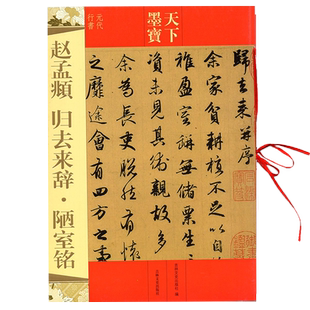 天下
墨寶
元代
行書
赵孟頫 归去来辞·陋室铭
歸去来并序
余家貧耕植不足以
自給幼稚盈室缾無儲粟生生所
資未見其術親故多
余為長吏脱然有懷
之靡途會有四方之